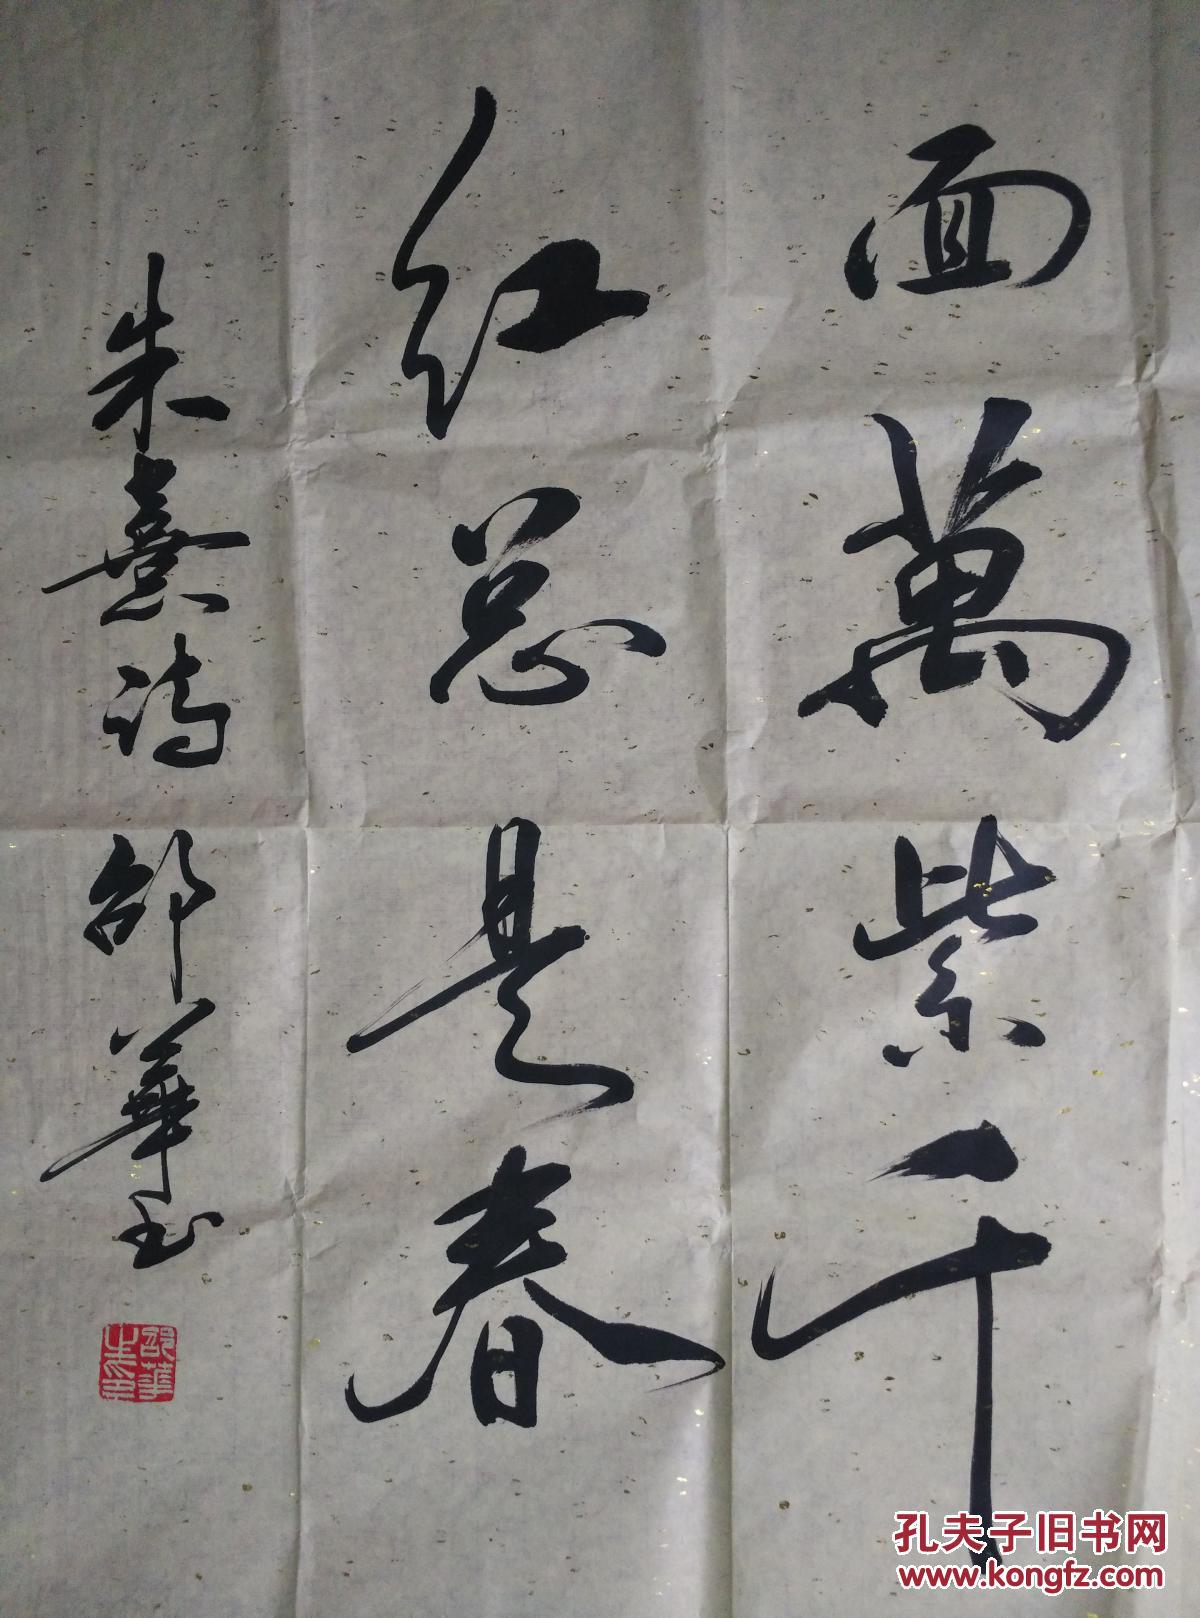 面萬紫千
红总是春
朱熹诗 邵華书
邵華之印
孔夫子旧书网
www.kongfz.com